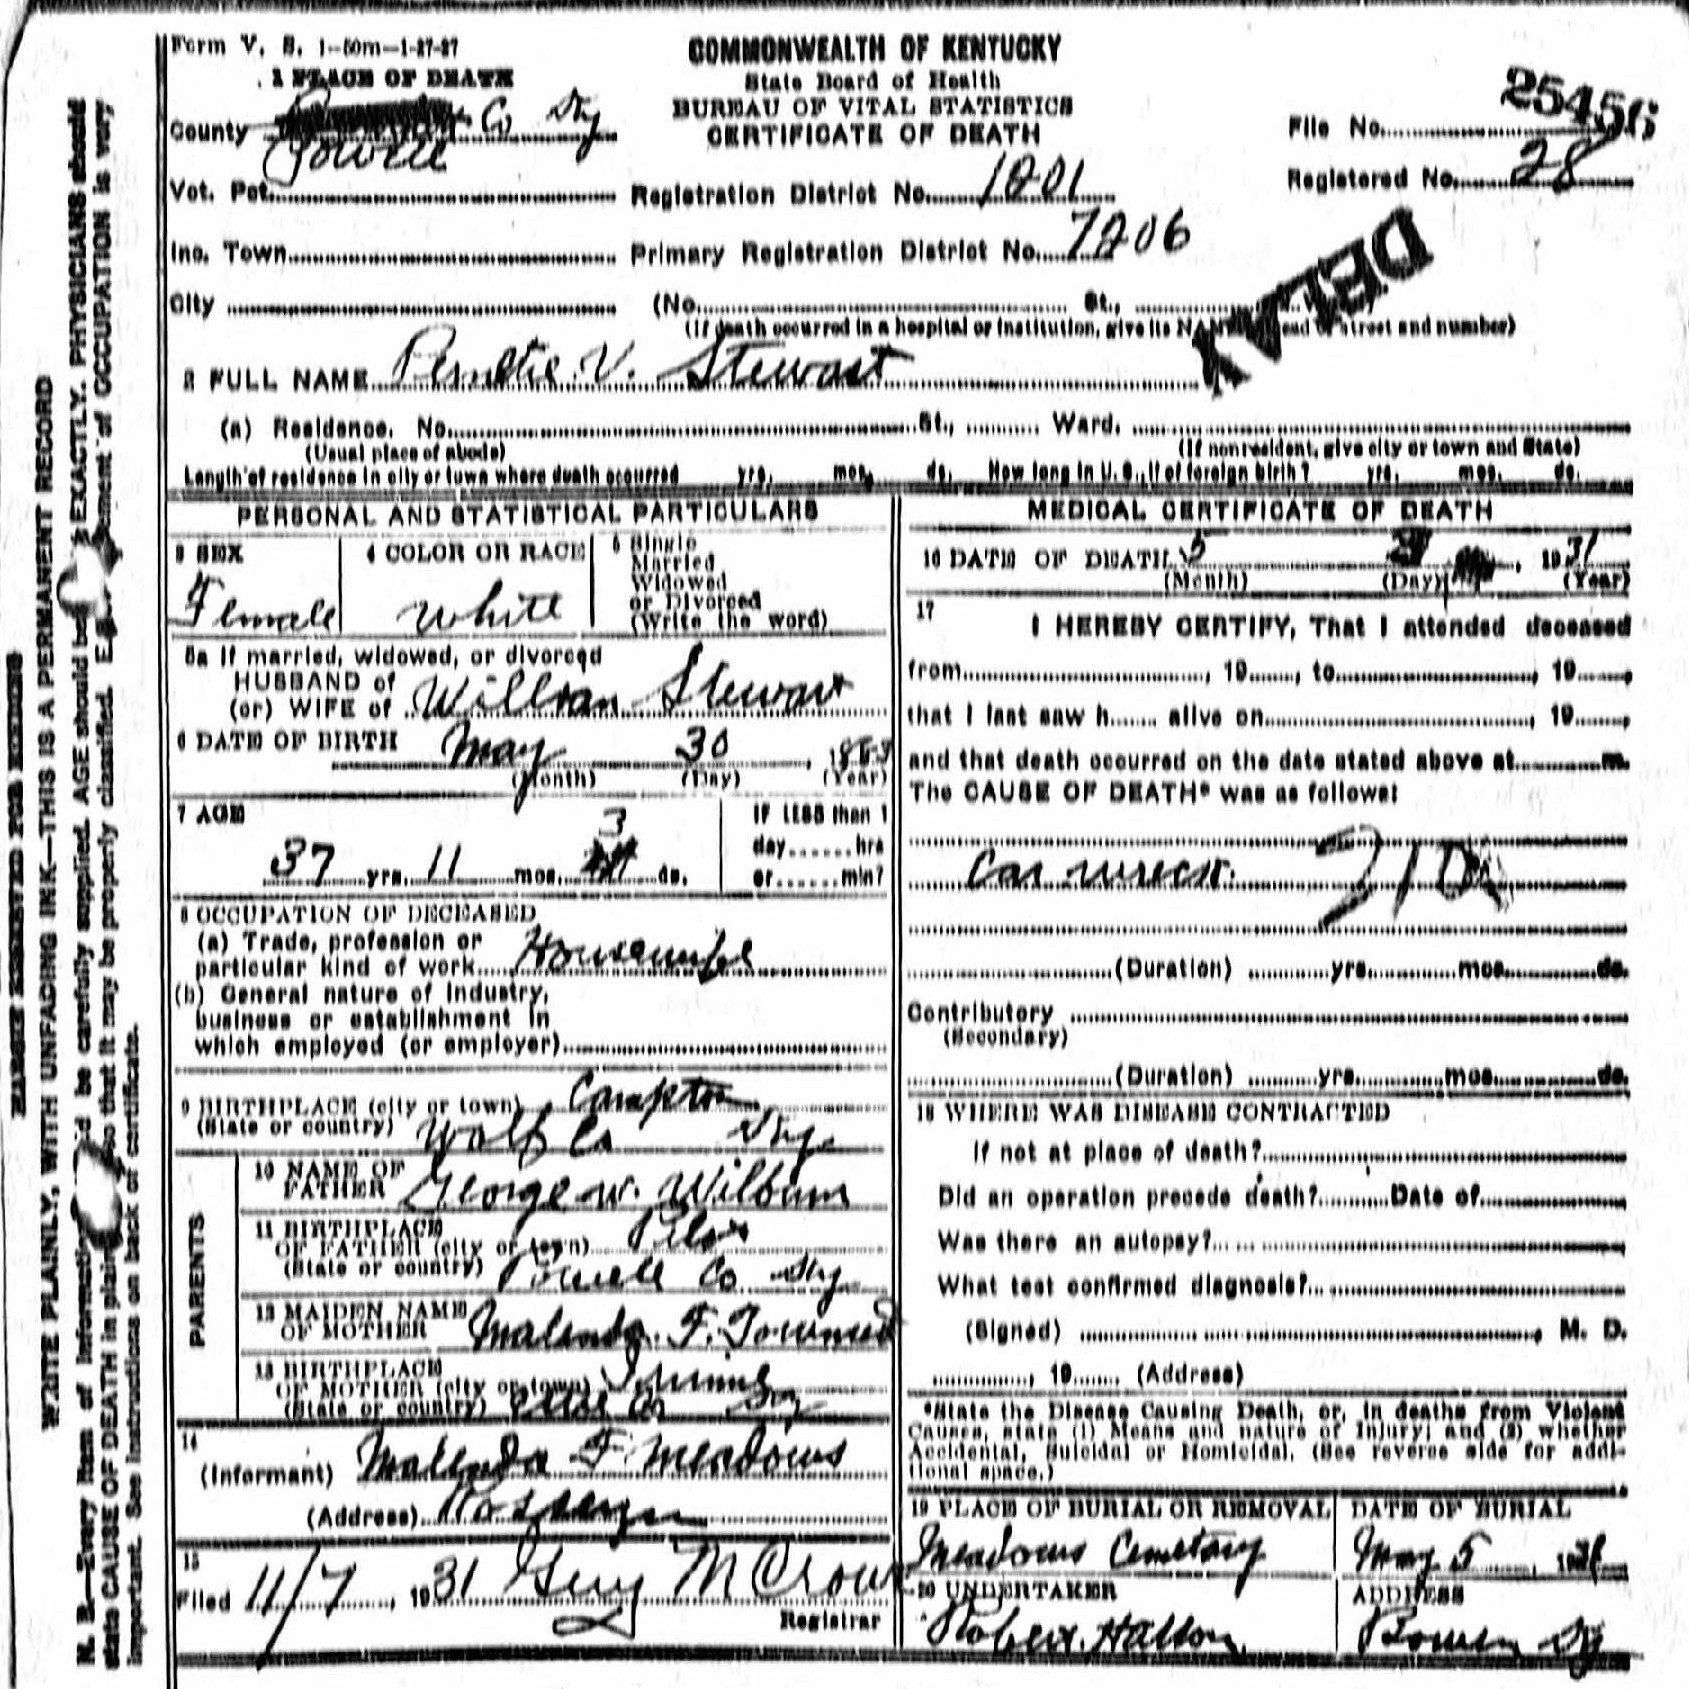 Form V. S. 1-50m-1-27-27
COMMONWEALTH OF KENTUCKY
State Board of Health
BUREAU OF VITAL STATISTICS
CERTIFICATE OF DEATH
1 PLACE OF DEATH
County Co Ky
Powell
Vot. Pct.
Inc. Town
City
Registration District No. 1201
Primary Registration District No. 7206
File No. 25456
Registered No. 28
DELAY
(No. St.,
(If death occurred in a hospital or institution, give its NAME instead of street and number)
2 FULL NAME V. Stewart
(a) Residence. No. St., Ward.
(Usual place of abode) (If nonresident, give city or town and State)
Length of residence in city or town where death occurred yrs. mos. ds. How long in U. S., if of foreign birth? yrs. mos. ds.
PERSONAL AND STATISTICAL PARTICULARS
3 SEX
Female
4 COLOR OR RACE
White
5 Single
Married
Widowed
or Divorced
(Write the word)
5a If married, widowed, or divorced
HUSBAND of
(or) WIFE of William Stewart
6 DATE OF BIRTH May 30
(Month) (Day) (Year)
7 AGE
37 yrs. 11 mos. 3 ds.
IF LESS than 1
day hrs
or min?
8 OCCUPATION OF DECEASED
(a) Trade, profession or
particular kind of work Housewife
(b) General nature of Industry,
business or establishment in
which employed (or employer)
9 BIRTHPLACE (city or town) Campton
(State or country) Wolf Co Ky.
PARENTS
10 NAME OF
FATHER George W. Wilburn
11 BIRTHPLACE
OF FATHER (city or town)
(State or country) Powell Co Ky
12 MAIDEN NAME
OF MOTHER Malenda F. Townsed
13 BIRTHPLACE
OF MOTHER (city or town)
(State or country) Co Ky
14
(Informant) Malenda F. Meadows
(Address)
15
Filed 11/7, 1931
Registrar
MEDICAL CERTIFICATE OF DEATH
16 DATE OF DEATH 5 3, 1931
(Month) (Day) (Year)
17
I HEREBY CERTIFY, That I attended deceased
from , 19 , to , 19 ,
that I last saw h alive on , 19 ,
and that death occurred on the date stated above at m.
The CAUSE OF DEATH* was as follows:
Car wreck.
(Duration) yrs. mos. ds.
Contributory
(Secondary)
(Duration) yrs. mos. ds.
18 WHERE WAS DISEASE CONTRACTED
If not at place of death?
Did an operation precede death? Date of
Was there an autopsy?
What test confirmed diagnosis?
(Signed) , M. D.
, 19 (Address)
*State the Disease Causing Death, or, in deaths from Violent
Causes, state (1) Means and nature of Injury; and (2) whether
Accidental, Suicidal or Homicidal. (See reverse side for addi-
tional space.)
19 PLACE OF BURIAL OR REMOVAL
Meadows Cemetary
DATE OF BURIAL
May 5, 1931
20 UNDERTAKER
Robert Hatton
ADDRESS
Bowen Ky
MARGIN RESERVED FOR BINDING
WRITE PLAINLY, WITH UNFADING INK—THIS IS A PERMANENT RECORD
N. B.—Every item of information should be carefully supplied. AGE should be EXACTLY. PHYSICIANS should
state CAUSE OF DEATH in plain so that it may be properly classified. of OCCUPATION is very
important. See instructions on back of certificate.